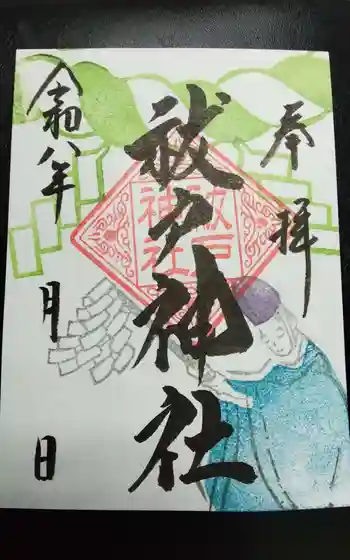 奉拝
祓戸神社
祓戸
神社
令和八年
月
日